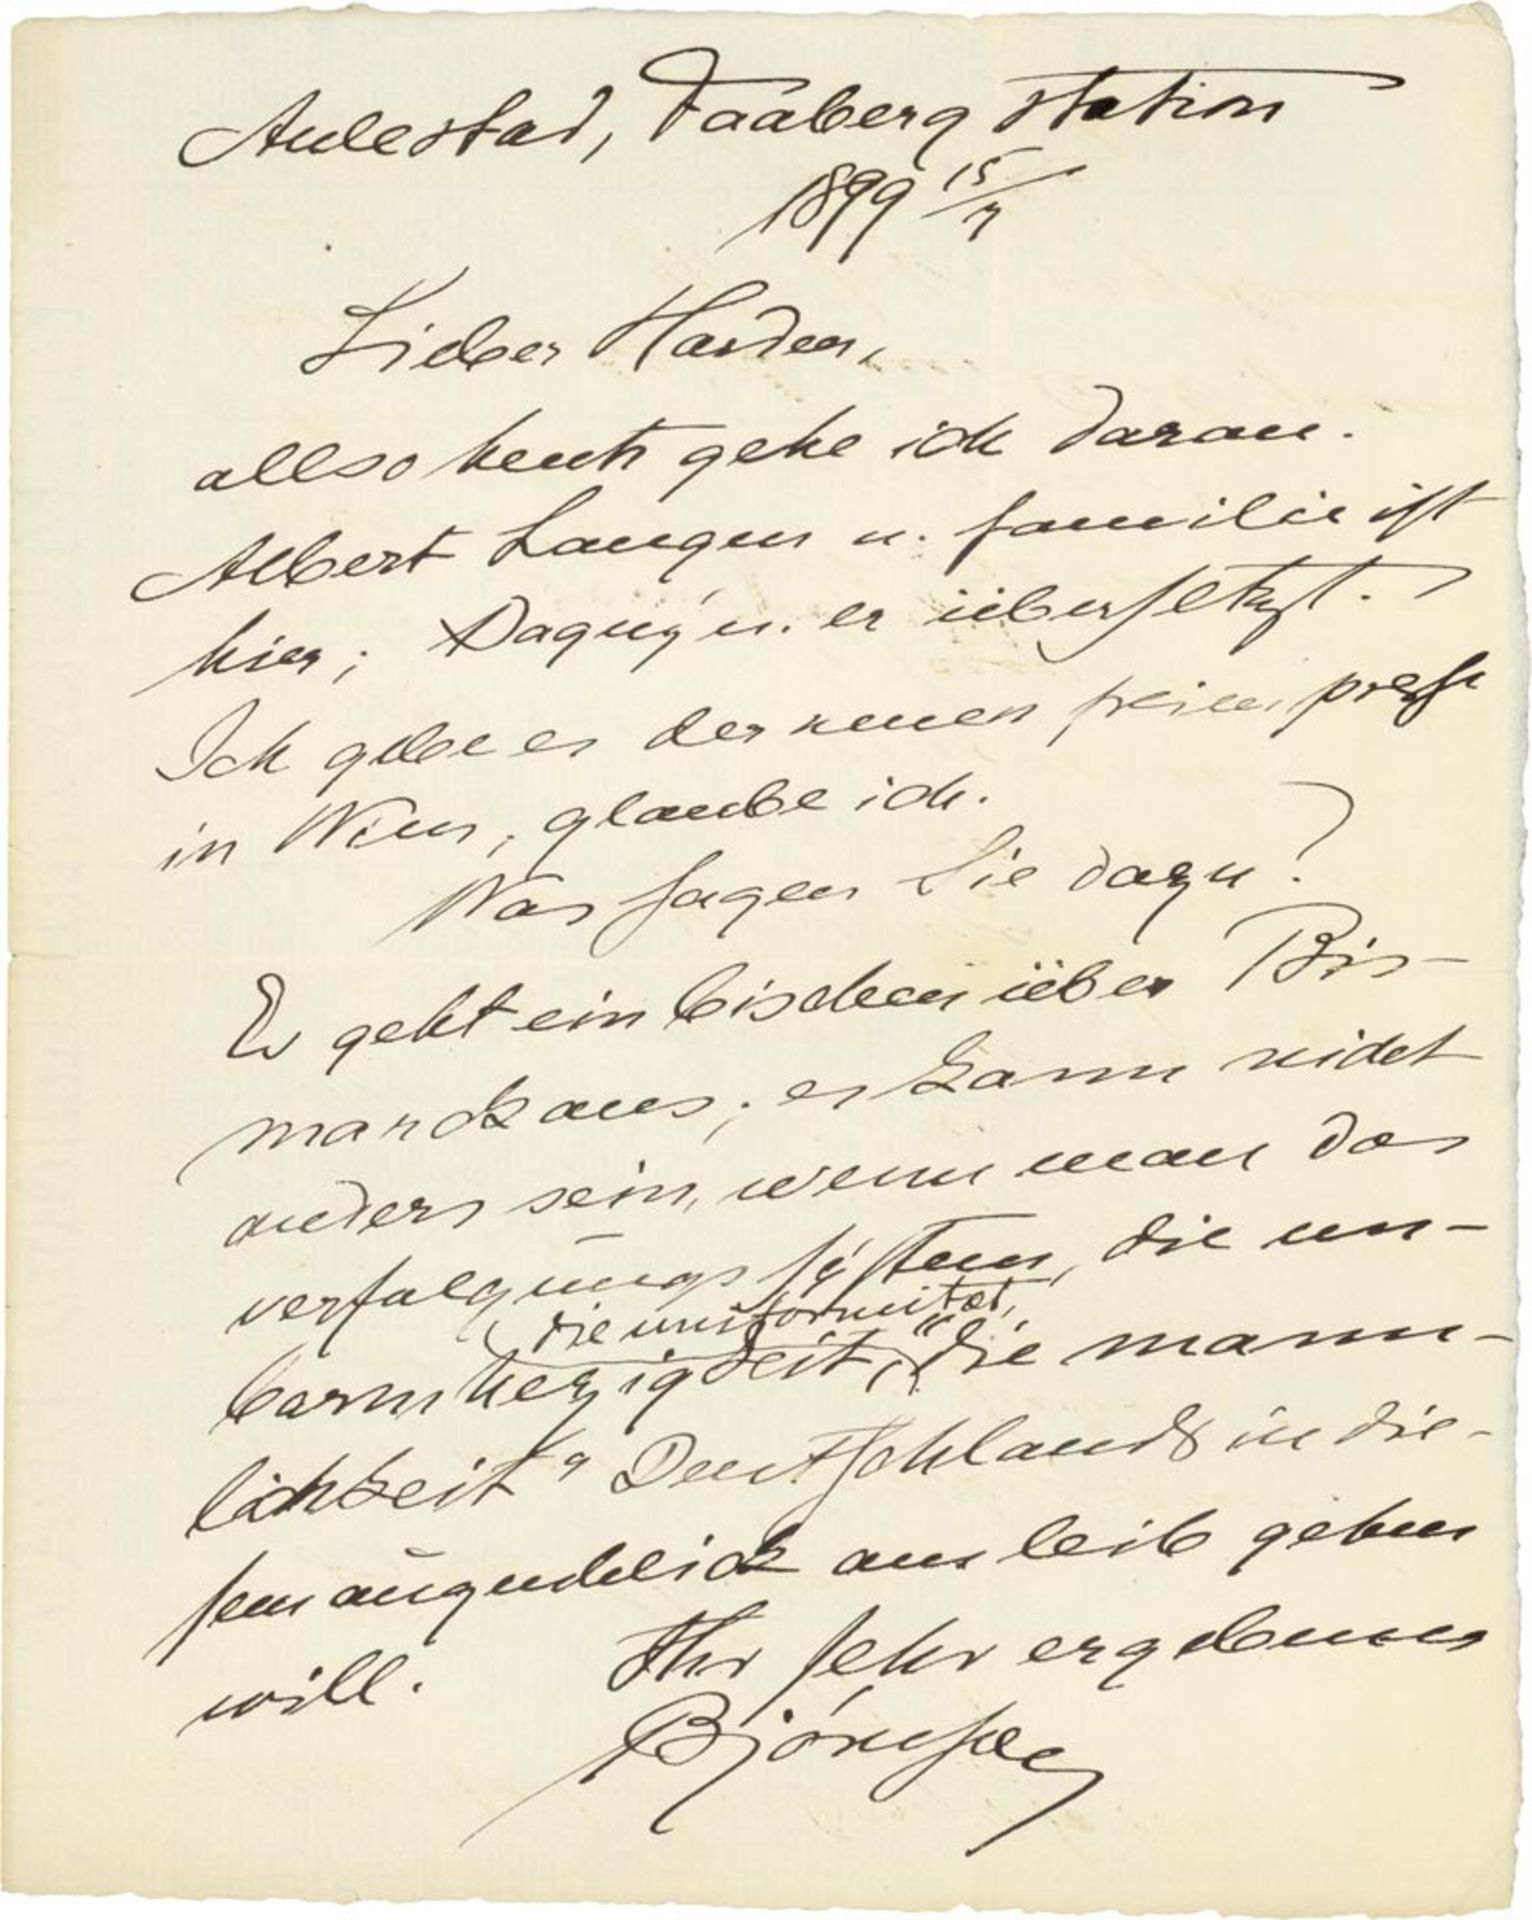 Aulestad, Faaberg station
1899 15/7
Lieber Harden,
allso heute gehe ich daran.
Albert Langen u. familie ist
hier; Dagny u. er übersetzt.
Ich gebe es der neuen freien presse
in Wien, glaube ich.
Was sagen Sie dazu?
Es geht ein bischen über Bis-
marck aus; es kann nicht
anders sein, wenn man das
verfolgungssystem, die un-
die uniformität,
barmherzigkeit, „die männ-
lichkeit“ Deutschlands in die-
sem augenblick ans leib gehen
will. Ihr sehr ergebener
Bjørnson